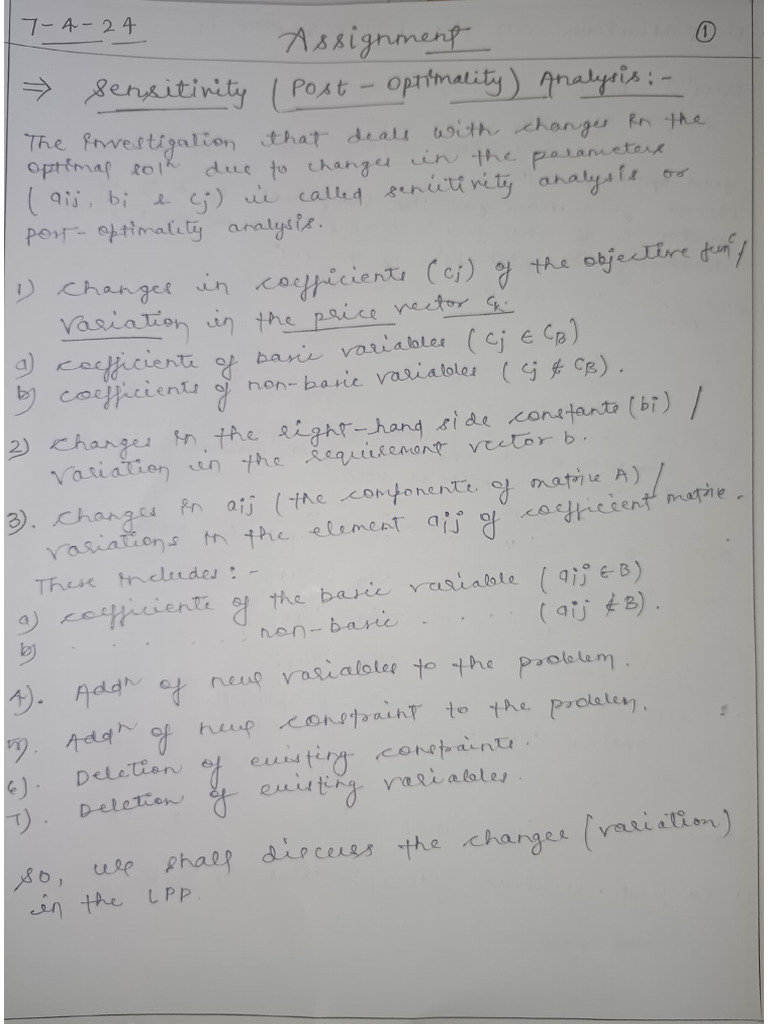 7-4-24
Assignment
①
⇒ Sensitivity (Post - optimality) Analysis:-
The investigation that deals with changes in the
optimal solⁿ due to changes in the parameters
(aij, bi & cj) is called sensitivity analysis or
post-optimality analysis.
1) changes in coefficients (cj) of the objective funⁿ/
variation in the price vector ck.
a) coefficients of basic variables (cj ∈ CB)
b) coefficients of non-basic variables (cj ∉ CB).
2) changes in the right-hand side constants (bi) /
variation in the requirement vector b.
3). changes in aij (the components of matrix A) /
variations in the element aij of coefficient matrix.
These includes :-
a) coefficients of the basic variable (aij ∈ B)
b) . . . . non-basic . . . . (aij ∉ B).
4). Addⁿ of new variables to the problem.
5). Addⁿ of new constraint to the problem.
6). Deletion of existing constraints.
7). Deletion of existing variables.
so, we shall discuss the changes (variation)
in the LPP.